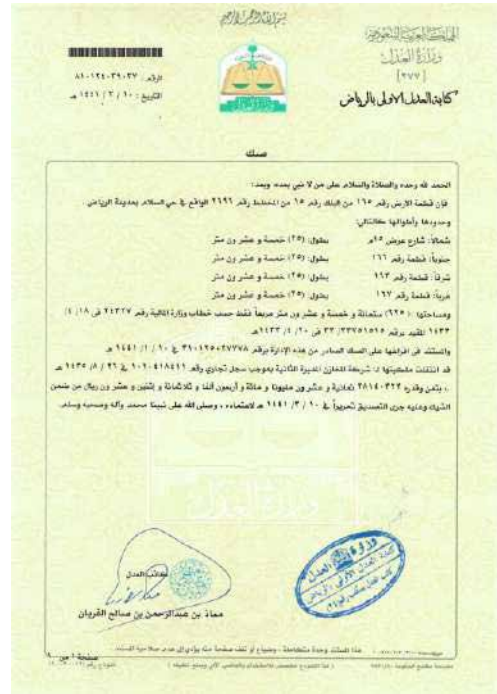 المملكة العربية السعودية
وزارة العدل
[٢٧٧]
كتابة العدل الاولى بالرياض
صك
الحمد لله وحده والصلاة والسلام على من لا نبي بعده وبعد:
فإن قطعة الارض رقم ١٦٥ من البلك رقم ١٥ من المخطط رقم ٢٦٩٦ الواقع في حي السلام بمدينة الرياض.
وحدودها وأطوالها كالتالي:
شمالاً: شارع عرض ١٥م بطول: (٢٥) خمسة و عشر ون متر
جنوباً: قطعة رقم ١٦٦ بطول: (٢٥) خمسة و عشر ون متر
شرقاً: قطعة رقم ١٦٣ بطول: (٢٥) خمسة و عشر ون متر
غرباً: قطعة رقم ١٦٧ بطول: (٢٥) خمسة و عشر ون متر
ومساحتها: (٦٢٥) ستمائة و خمسة و عشر ون متر مربعاً فقط حسب خطاب وزارة المالية رقم ٢٤٣٢٧ في ١٨/ ٤/
١٤٣٣ المقيد برقم ٣٣/٣٣٧٥١٥٢٥ في ٢٠/ ٤/ ١٤٣٣هـ
والمستند في افراغها على الصك الصادر من هذه الإدارة برقم ٣١٠١٢٥٠٢٧٧٧٨ في ١٠/ ١/ ١٤٤١ هـ
قد انتقلت ملكيتها لـ: شركة المخازن المميزة الثانية بموجب سجل تجاري رقم ١٠١٠٤١٨٤١١ في ٢٦/ ٨/ ١٤٣٥ هـ
، بثمن وقدره ٢٨١٤٠٣٢٢ ثمانية و عشر ون مليونا و مائة و أربعون ألفا و ثلاثمائة و إثنين و عشر ون ريال من ضمن
الشيك وعليه جرى التصديق تحريراً في ١٠ / ٣/ ١٤٤١ هـ لاعتماده، وصلى الله على نبينا محمد وآله وصحبه وسلم.
كاتب العدل
معاذ بن عبدالرحمن بن صالح القريان
وزارة العدل
هذا المستند وحدة متكاملة، وضياع أو تلف صفحة منه يؤدي إلى عدم صلاحية المستند